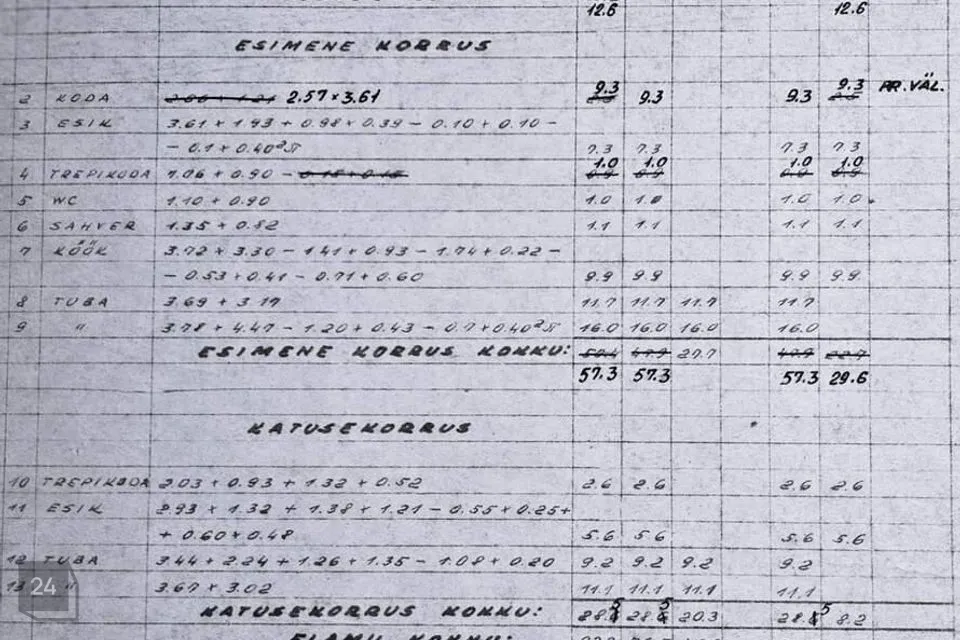 12.6 12.6
ESIMENE KORRUS
9.3 9.3 PR. VÄL.
2 KODA 2.57 × 3.61 9.3 9.3
3 ESIK 3.61 × 1.93 + 0.98 × 0.39 - 0.10 × 0.10 -
- 0.1 × 0.40²π 7.3 7.3 7.3 7.3
1.0 1.0 1.0 1.0
4 TREPIKODA 1.06 × 0.90 - 0.15 × 0.15 0.9 0.9 0.9 0.9
5 WC 1.10 × 0.90 1.0 1.0 1.0 1.0
6 SAHVER 1.35 × 0.82 1.1 1.1 1.1 1.1
7 KÖÖK 3.72 × 3.30 - 1.41 × 0.93 - 1.74 × 0.22 -
- 0.53 × 0.41 - 0.71 × 0.60 9.9 9.9 9.9 9.9
8 TUBA 3.69 × 3.17 11.7 11.7 11.7 11.7
9 " 3.78 × 4.47 - 1.20 × 0.43 - 0.7 × 0.40²π 16.0 16.0 16.0 16.0
ESIMENE KORRUS KOKKU: 27.7
57.3 57.3 57.3 29.6
KATUSEKORRUS
10 TREPIKODA 2.03 × 0.93 + 1.32 × 0.52 2.6 2.6 2.6 2.6
11 ESIK 2.93 × 1.32 + 1.38 × 1.21 - 0.55 × 0.25 +
+ 0.60 × 0.48 5.6 5.6 5.6 5.6
12 TUBA 3.44 × 2.24 + 1.26 × 1.35 - 1.08 × 0.20 9.2 9.2 9.2 9.2
13 " 3.67 × 3.02 11.1 11.1 11.1 11.1
KATUSEKORRUS KOKKU: 28.5 28.5 20.3 28.5 8.2
ELAMU KOKKU:
24